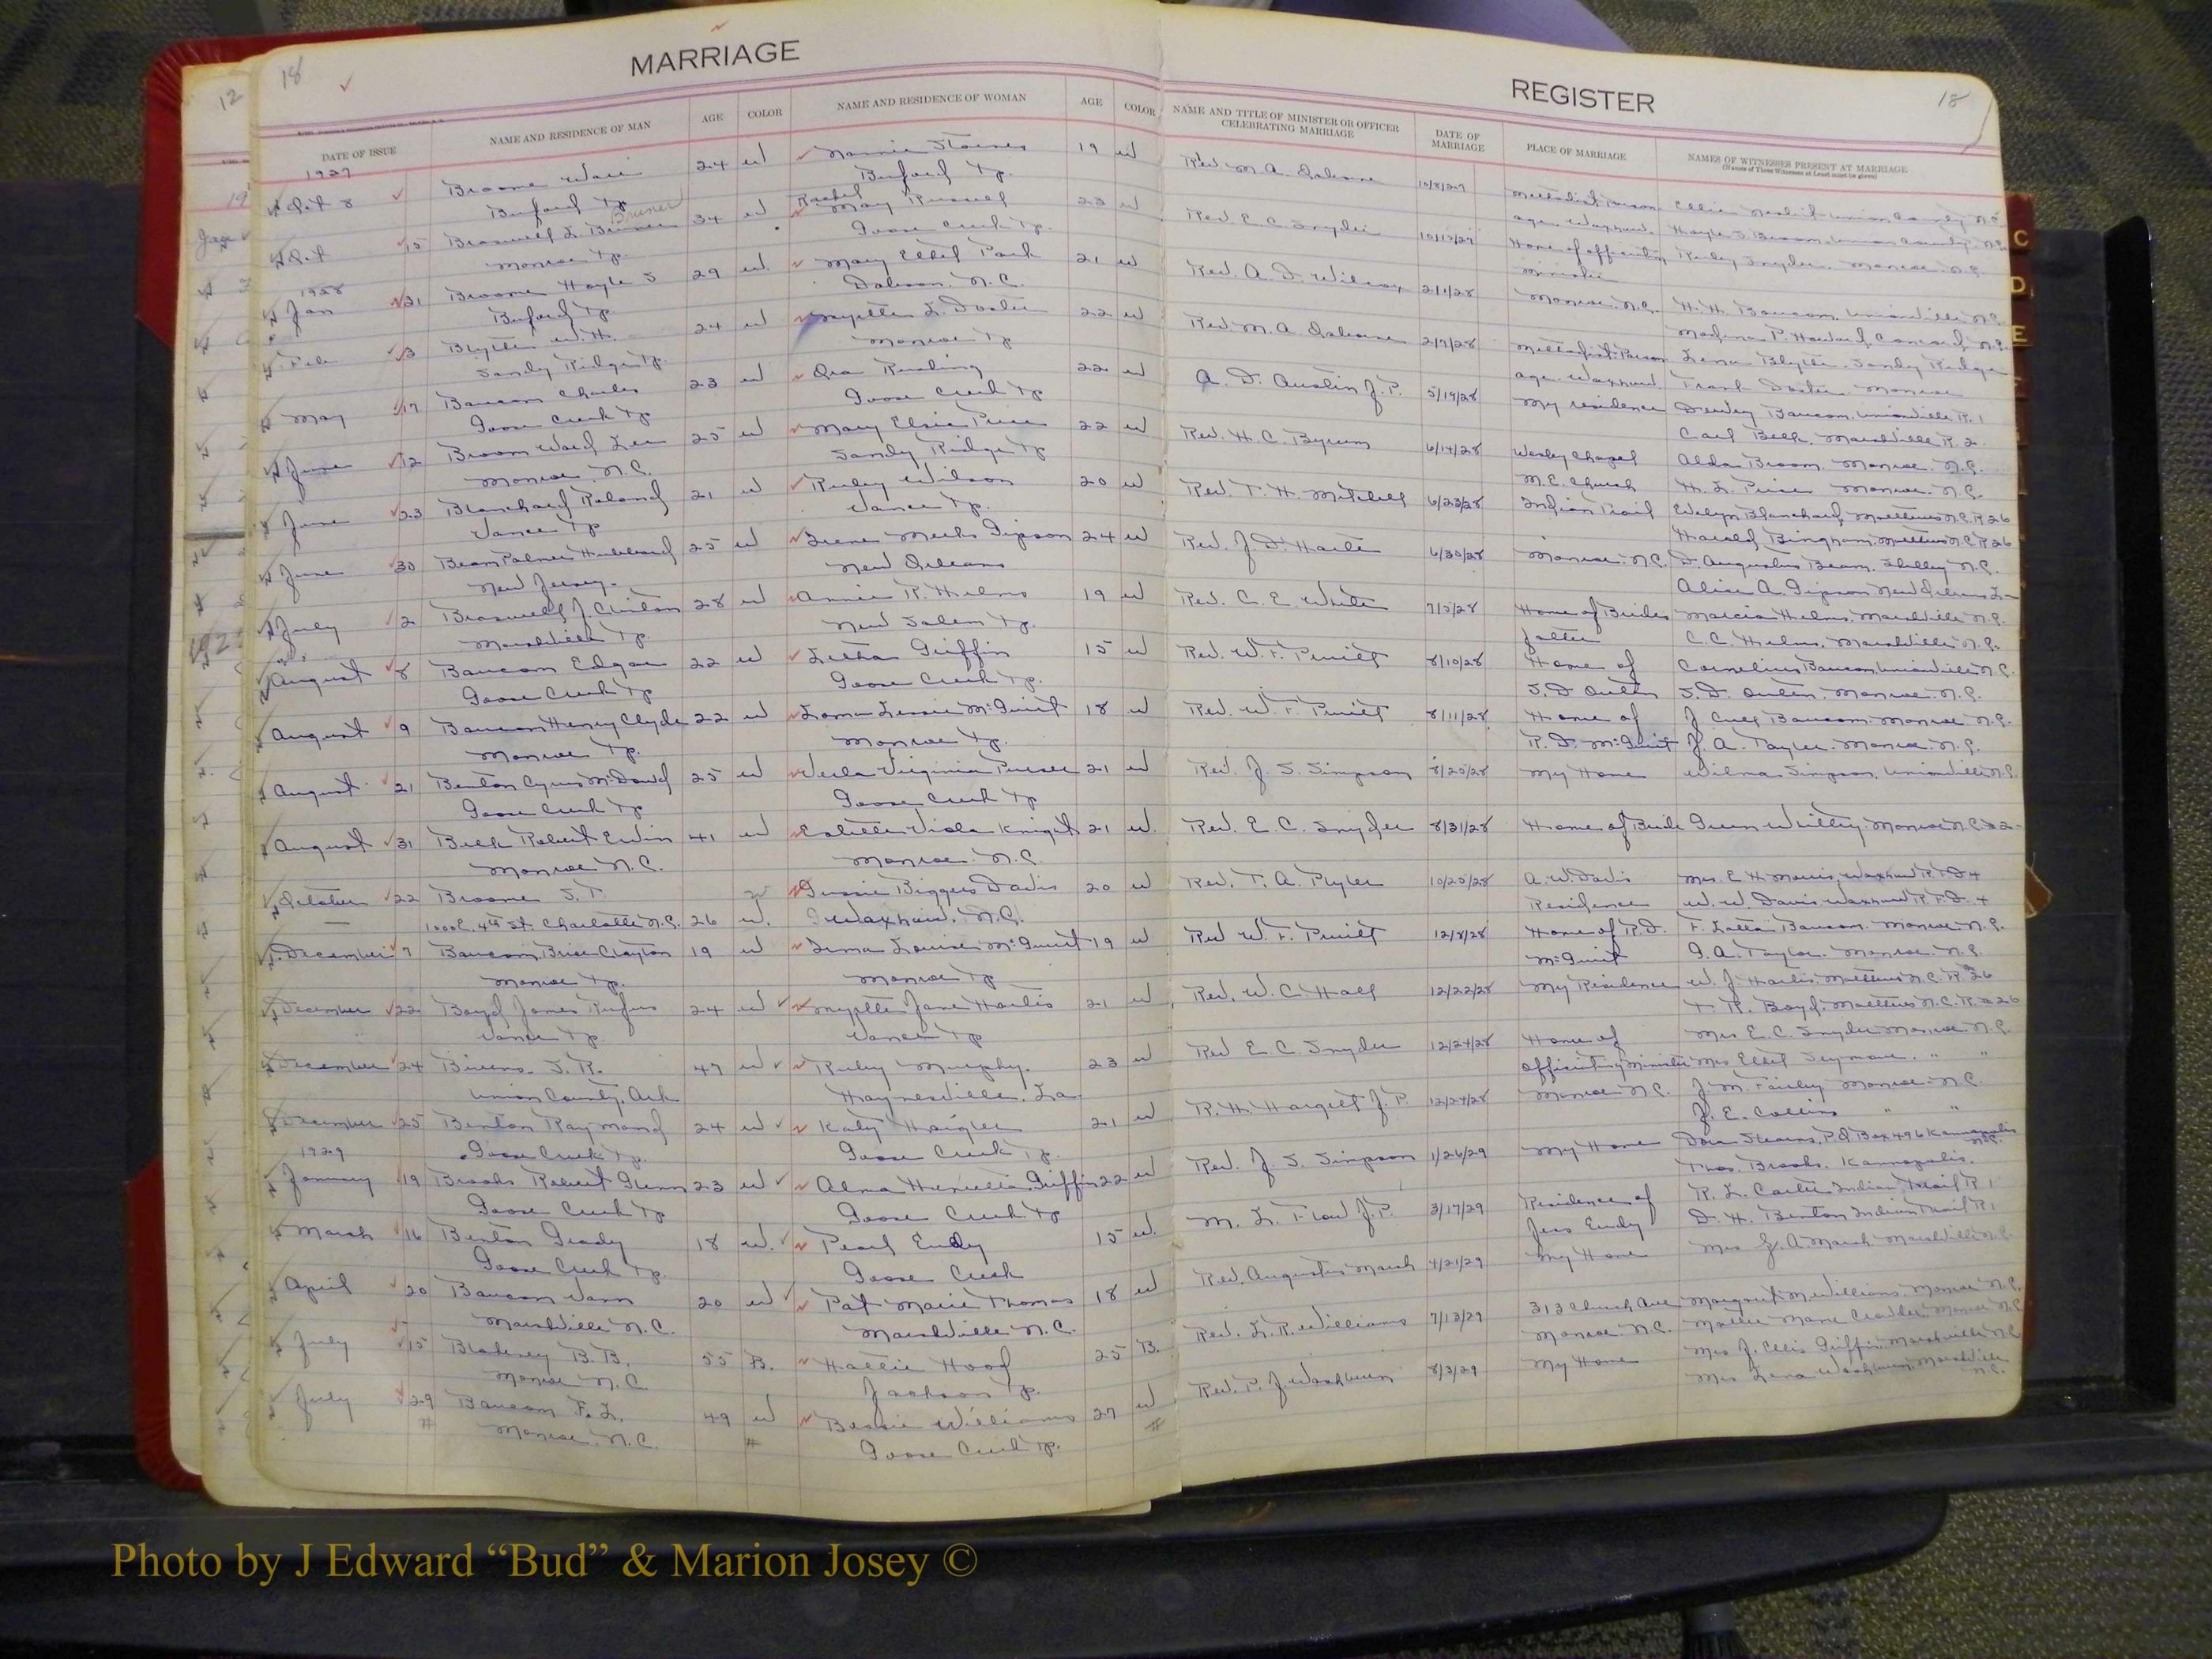 18
MARRIAGE
DATE OF ISSUE NAME AND RESIDENCE OF MAN AGE COLOR NAME AND RESIDENCE OF WOMAN AGE COLOR
1927
Oct 8 Broome 24 w Nannie Starnes 19 w
Buford Tp Buford Tp.
Oct 15 Braswell L. Bruner 34 w Rachel May Russell 23 w
Monroe Tp. Goose Creek Tp.
1928
Jan 31 Broome Hoyle S 29 w. Mary Ethel Park 21 w
Buford Tp Dobson N.C.
Feb 3 Blythe W. H. 24 w Myrtle L. Doster 22 w
Sandy Ridge Tp. Monroe Tp
May 17 Baucom Charles 23 w Ora Rushing 22 w
Goose Creek Tp Goose Creek Tp
June 12 Broom Ward Lee 25 w Mary Elsie Price 22 w
Monroe, N.C. Sandy Ridge Tp
June 23 Blanchard Roland 21 w Ruby Wilson 20 w
Vance Tp Vance Tp.
June 30 Beam Palmer Hubbard 25 w Irene Meeks Gipson 24 w
New Jersey. New Orleans
July 2 Braswell J. Clinton 28 w Annie R. Helms 19 w
Marshville Tp. New Salem Tp.
August 8 Baucom Edgar 22 w Letha Griffin 15 w
Goose Creek Tp Goose Creek Tp.
August 9 Baucom Henry Clyde 22 w Loma Lessie McGuirt 18 w
Monroe Tp. Monroe Tp.
August 21 Benton Cyrus McDowd 25 w Verla Virginia Purser 21 w
Goose Creek Tp Goose Creek Tp
August 31 Belk Robert Erwin 41 w Estelle Viola Knight 21 w.
Monroe N.C. Monroe. N.C.
October 22 Broome S. T. Gussie Biggers Davis 20 w
1000 E. 4th St. Charlotte N.C. 26 w. Waxhaw, N.C.
December 7 Baucom Brice Clayton 19 w Irma Louise McGuirt 19 w
Monroe Tp. Monroe Tp
December 22 Boyd James Rufus 24 w Myrtle Jane Hartis 21 w
Vance Tp. Vance Tp
December 24 Bivens. S. R. 47 w Ruby Murphy. 23 w
Union County, Ark Haynesville, La
December 25 Benton Raymond 24 w Katy Haigler 21 w
1929 Goose Creek Tp. Goose Creek Tp.
January 19 Brooks Robert Glenn 23 w Alma Henrietta Griffin 22 w
Goose Creek Tp Goose Creek Tp
March 16 Benton Grady 18 w. Pearl Eudy 15 w.
Goose Creek Tp. Goose Creek
April 20 Baucom Vann 20 w Pat Marie Thomas 18 w
Marshville N.C. Marshville N.C.
July 15 Blakeney B. B. 55 B. Hattie Hood 25 B.
Monroe N.C. Jackson Tp.
July 29 Baucom F. L. 49 w Bessie Williams 27 w
Monroe. N.C. Goose Creek Tp.
REGISTER
18
NAME AND TITLE OF MINISTER OR OFFICER CELEBRATING MARRIAGE DATE OF MARRIAGE PLACE OF MARRIAGE NAMES OF WITNESSES PRESENT AT MARRIAGE
(Names of Three Witnesses at Least must be given)
Rev. M. A. Osborne 10/8/27 Methodist Parson- Ellie Union County N.C.
age. Waxhaw. Hoyle S. Broom. Union County. N.C.
Rev. E. C. Snyder 10/15/27 Home of officiating Ruby Snyder. Monroe. N.C.
minister
Rev. A. D. Wilcox 2/1/28 Monroe. N.C. H. H. Baucom. Unionville N.C.
P. Howard, Concord, N.C.
Rev. M. A. Osborne 2/7/28 Methodist Parson- Lena Blythe. Sandy Ridge
age. Waxhaw. Frank Doster. Monroe
A. D. Austin J. P. 5/19/28 My residence Dewey Baucom. Unionville R. 1
Carl Belk. Marshville R. 2.
Rev. H. C. Byrum 6/14/28 Wesley Chapel Alda Broom. Monroe. N.C.
M.E. Church H. L. Price Monroe. N.C.
Rev. T. H. Mitchell 6/23/28 Indian Trail Evelyn Blanchard, Matthews N.C. R 26
Harold Bingham, Matthews N.C. R 26
Rev. J. D. Harte 6/30/28 Monroe. N.C. D. Augustus Beam. Shelby N.C.
Alice A. Gipson New Orleans La
Rev. C. E. White 7/5/28 Home of Brides Marcia Helms, Marshville N.C.
father C. C. Helms, Marshville N.C.
Rev. W. F. Pruitt 8/10/28 Home of Cornelius Baucom, Unionville N.C.
S. D. Outen S. D. Outen. Monroe. N.C.
Rev. W. F. Pruitt 8/11/28 Home of J Baucom Monroe N.C.
R. D. McGuirt J. A. Taylor. Monroe. N.C.
Rev. J. S. Simpson 8/25/28 My Home Wilma Simpson, Unionville N.C.
Rev. E. C. Snyder 8/31/28 Home of Bride Green Whitley. Monroe N.C. # 2.
Rev. T. A. Plyler 10/25/28 A. W. Davis Mrs. E. H. Morris, Waxhaw R.F.D. 4
Residence W. W. Davis. Waxhaw R.F.D. 4
Rev W. F. Pruitt 12/8/28 Home of R.D. F. Latta Baucom. Monroe N.C.
McGuirt J. A. Taylor. Monroe. N.C.
Rev. W. C. Hall 12/22/28 My Residence W. J. Hartis. Matthews N.C. R# 26
T. R. Boyd. Matthews N.C. R. # 26
Rev E. C. Snyder 12/24/28 Home of Mrs E. C. Snyder Monroe N.C.
officiating minister Mrs Ethel Seymour. " "
R. H. Hargett J. P. 12/24/28 Monroe N.C. J. M. Fairley Monroe N.C.
J. E. Collins " "
Rev. J. S. Simpson 1/26/29 My Home Dora Stearns, P.O. Box 496 Kannapolis N.C.
Thos. Brooks. Kannapolis.
M. L. Flow J. P. 3/17/29 Residence of R. L. Carter Indian Trail R 1
Jess Eudy D. H. Benton Indian Trail R 1
Rev. Augustus Marsh 4/21/29 My Home Mrs J. A Marsh Marshville N.C.
Rev. L. R. Williams 7/13/29 313 Church Ave Margaret M. Williams. Monroe N.C.
Monroe. N.C. Mattie Marie Crowder Monroe N.C.
Rev. P. J. Washburn 8/3/29 My Home Mrs J. Ellis Griffin, Marshville N.C.
Mrs Lena Washburn, Marshville N.C.
12
C
D
E
Photo by J Edward “Bud” & Marion Josey ©